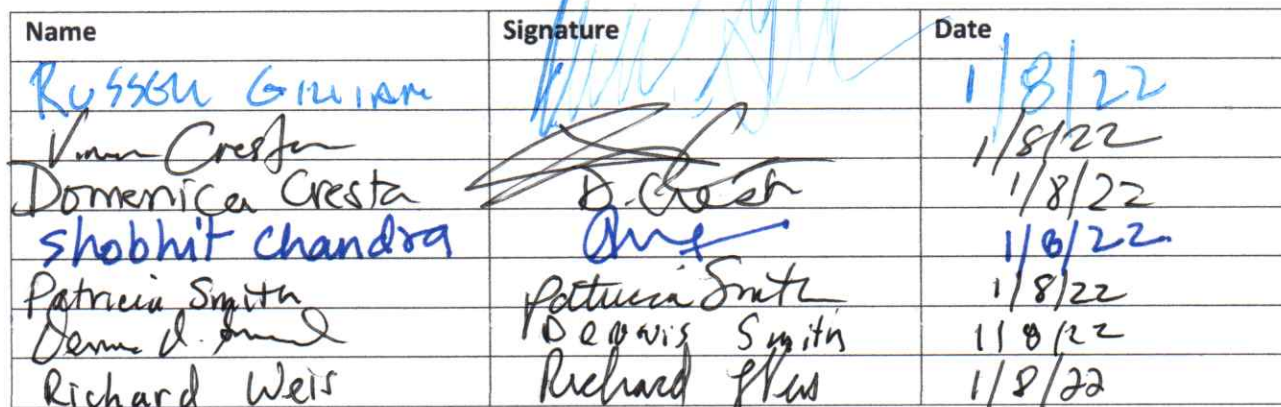 Name Signature Date
RUSSELL GILLIAM 1/8/22
Cresta 1/8/22
Domenica Cresta D. Cresta 1/8/22
Shobhit Chandra 1/8/22
Patricia Smith Patricia Smith 1/8/22
Dennis Smith 1/8/22
Richard Weis Richard Weis 1/8/22